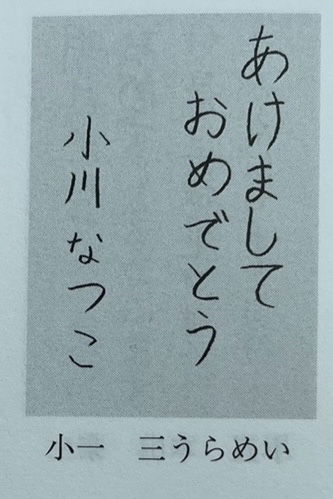 あけまして
おめでとう
小川なつこ
小一　三うらめい